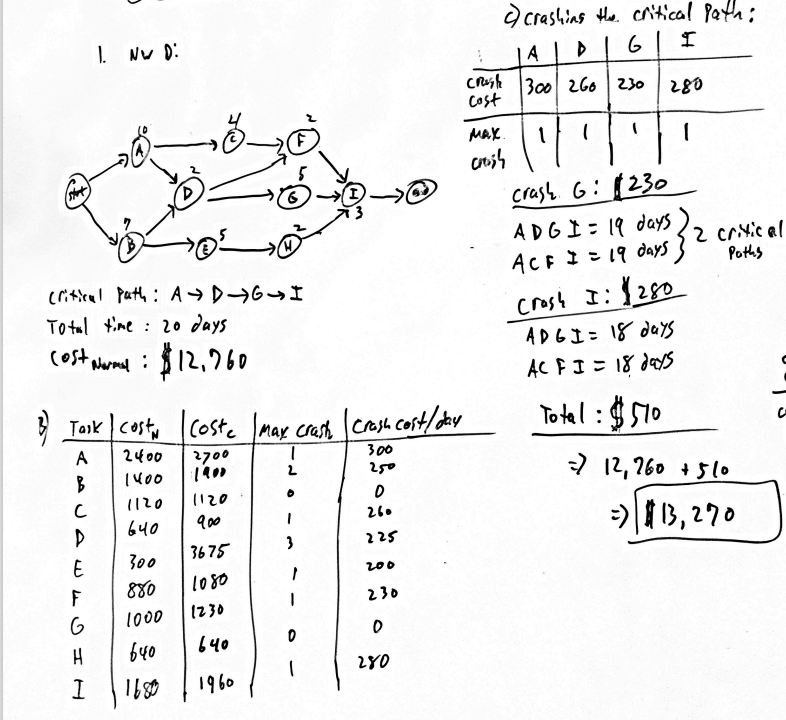 1. NW D:
10
A
4
C
2
F
Start
2
D
5
G
I
3
End
7
B
5
E
2
H
Critical Path: A → D → G → I
Total time: 20 days
Cost Normal: $12,760
B)
Task | Cost N | Cost C | Max crash | Crash cost/day
A 2400 2700 1 300
B 1400 1900 2 250
C 1120 1120 0 0
D 640 900 1 260
E 300 3675 3 225
F 880 1080 1 200
G 1000 1230 1 230
H 640 640 0 0
I 1680 1960 1 280
c) crashing the critical Path:
A | D | G | I
Crash cost | 300 | 260 | 230 | 280
Max crash | 1 | 1 | 1 | 1
Crash G: $230
A D G I = 19 days
A C F I = 19 days } 2 critical Paths
Crash I: $280
A D G I = 18 days
A C F I = 18 days
Total: $510
⇒ 12,760 + 510
⇒ $13,270